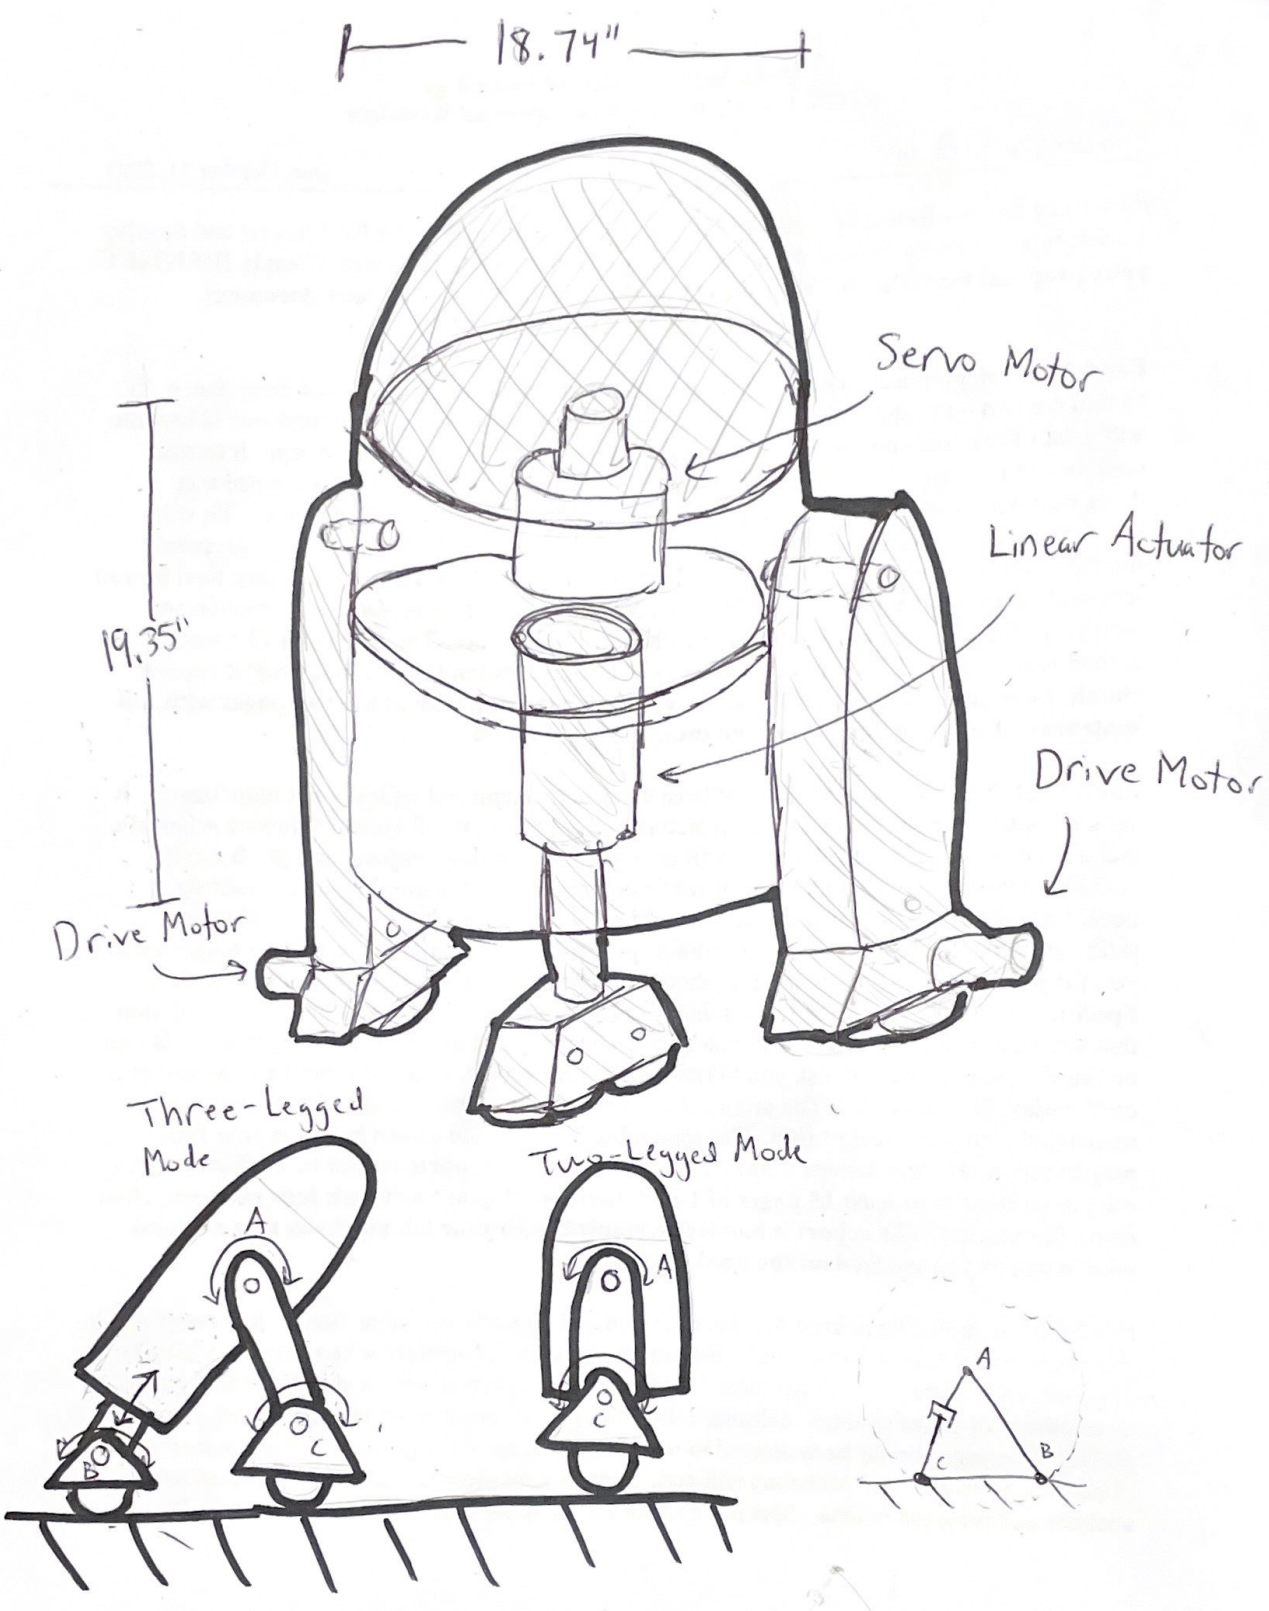 18.74"
Servo Motor
Linear Actuator
19.35"
Drive Motor
Drive Motor
Three-Legged
Mode
Two-Legged Mode
A
A
B
C
C
A
C
B